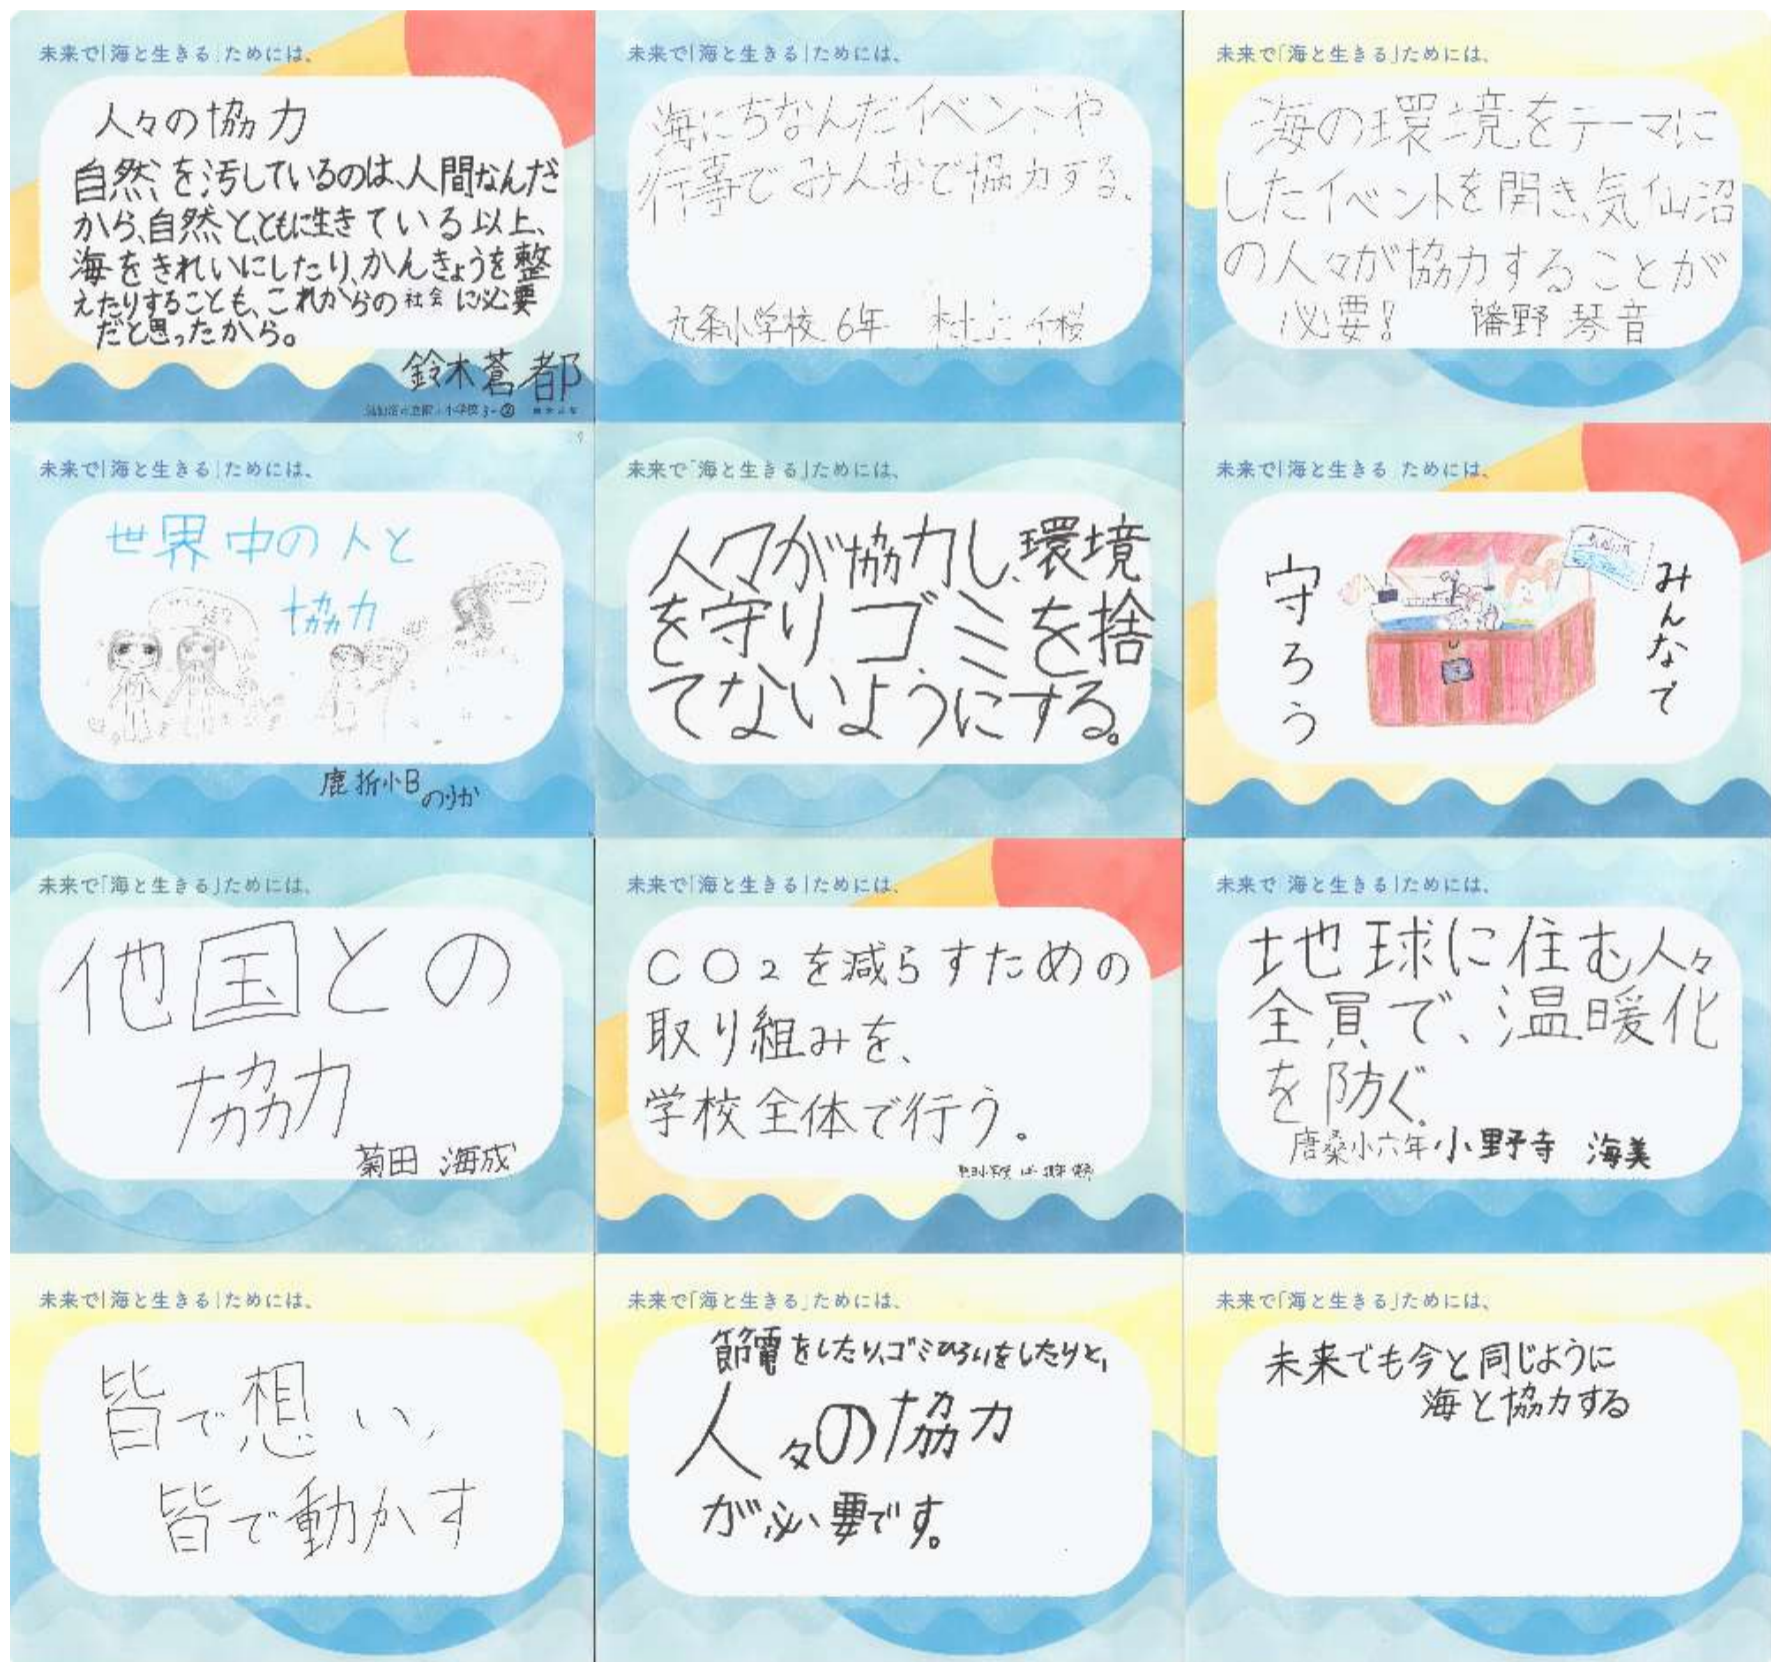 未来で「海と生きる」ためには、
人々の協力
自然を汚しているのは、人間なんだ
から、自然とともに生きている以上、
海をきれいにしたり、かんきょうを整
えたりすることも、これからの社会に必要
だと思ったから。
鈴木蒼都
未来で「海と生きる」ためには、
海にちなんだイベントや
行事でみんなで協力する。
九条小学校 6年 村上
未来で「海と生きる」ためには、
海の環境をテーマに
したイベントを開き、気仙沼
の人々が協力することが
必要! 野 琴音
未来で「海と生きる」ためには、
世界中の人と
協力
鹿折小B
のりか
未来で「海と生きる」ためには、
人々が協力し、環境
を守りゴミを捨
てないようにする。
未来で「海と生きる」ためには、
みんなで
守ろう
未来で「海と生きる」ためには、
他国との
協力
菊田 海成
未来で「海と生きる」ためには、
CO2を減らすための
取り組みを、
学校全体で行う。
未来で「海と生きる」ためには、
地球に住む人々
全員で、温暖化
を防ぐ。
唐桑小六年 小野寺 海美
未来で「海と生きる」ためには、
皆で想い、
皆で動かす
未来で「海と生きる」ためには、
節電をしたり、ゴミひろいをしたりと、
人々の協力
が必要です。
未来で「海と生きる」ためには、
未来でも今と同じように
海と協力する